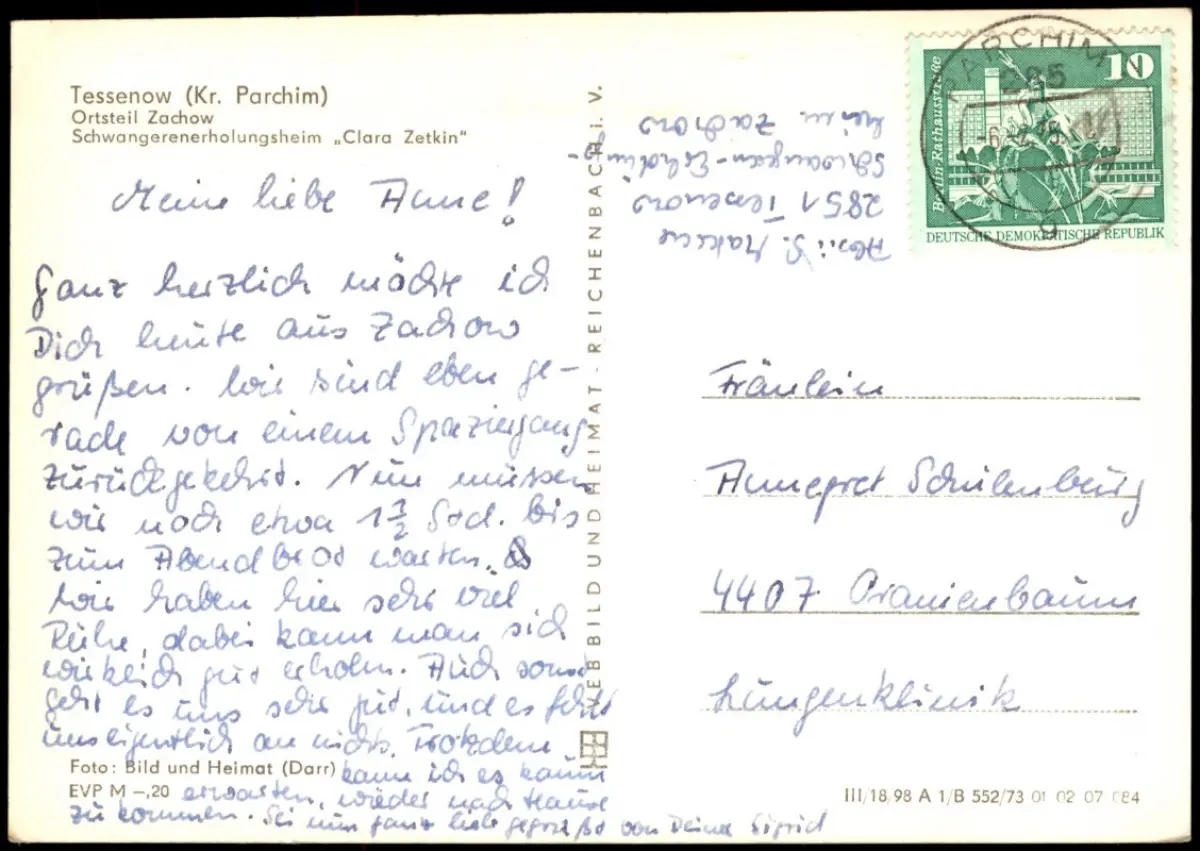 Tessenow (Kr. Parchim)
Ortsteil Zachow
Schwangerenerholungsheim „Clara Zetkin“
Meine liebe Anne!
Ganz herzlich möchte ich
Dich heute aus Zachow
grüßen. Wir sind eben ge-
rade von einem Spaziergang
zurückgekehrt. Nun müssen
wir noch etwa 1 1/2 Std. bis
zum Abendbrot warten.
Wir haben hier sehr viel
Ruhe, dabei kann man sich
wirklich gut erholen. Auch sonst
geht es uns sehr gut, und es fehlt
uns eigentlich an nichts. Trotzdem
kann ich es kaum
erwarten, wieder nach Hause
zu kommen. Sei nun ganz lieb gegrüßt von Deiner Sigrid
Foto: Bild und Heimat (Darr)
EVP M –,20
VEB BILD UND HEIMAT · REICHENBACH i. V.
Abs.: S.
2851 Tessenow
Schwangeren-Erholungs-
heim Zachow
PARCHIM
285
g
10
Berlin, Rathausstraße
DEUTSCHE DEMOKRATISCHE REPUBLIK
Fräulein
Annegret Schulenburg
4407 Oranienbaum
Lungenklinik
III/18/98 A 1/B 552/73 01 02 07 084